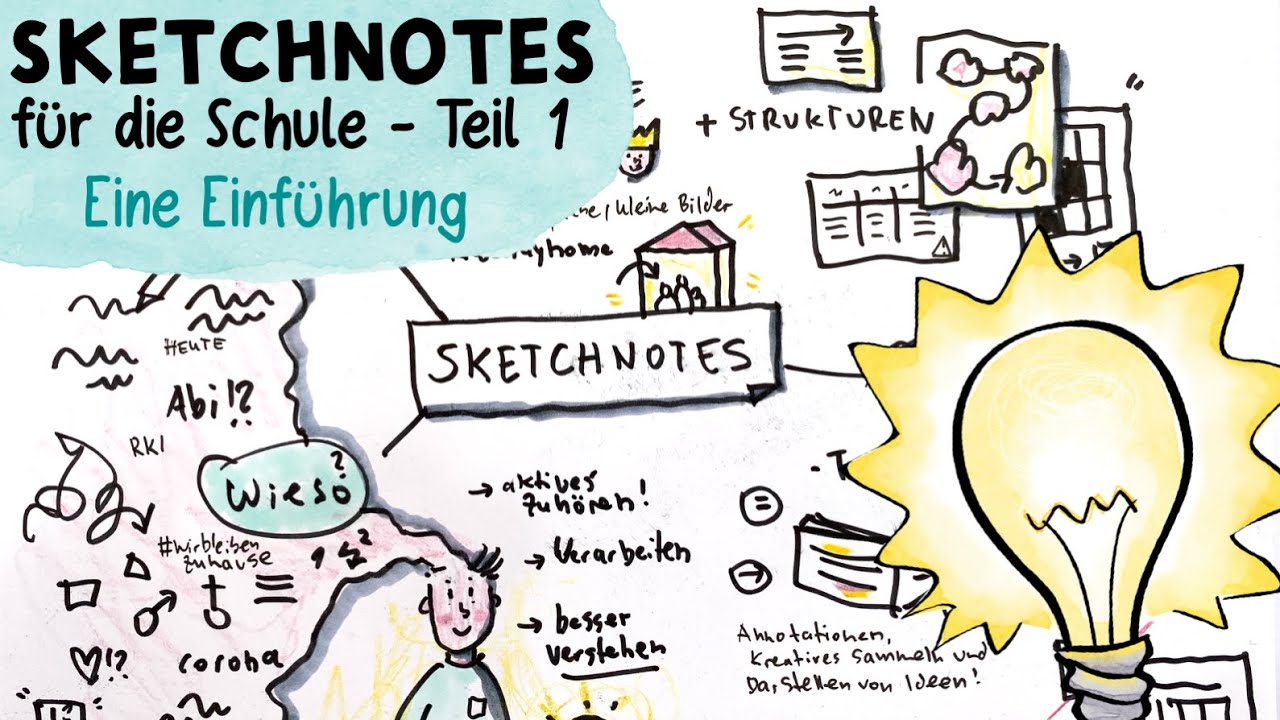 SKETCHNOTES
für die Schule - Teil 1
Eine Einführung
+ STRUKTUREN
kleine Bilder
SKETCHNOTES
HEUTE
Abi!?
RKI
Wieso?
#wirbleiben
zuhause
!?
corona
→ aktives
zuhören!
→ Verarbeiten
→ besser
verstehen
=
→
Annotationen,
Kreatives Sammeln und
Darstellen von Ideen!